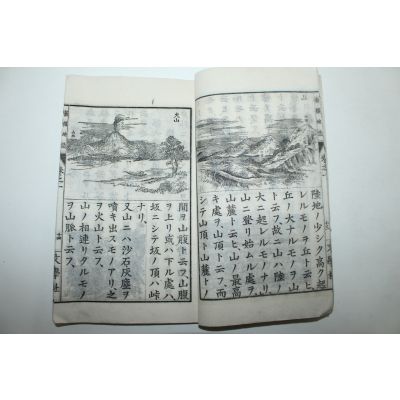 山
陸地ノ少シク高ク起
レルモノヲ丘ト云ヒ
丘ノ大ナルモノヲ山
ト云フ、故ニ山ハ陸ノ
大ニ起レルモノナリ
山ニ登リ始ムル處ヲ
山麓ト云ヒ山ノ最高
キ處ヲ山頂ト云フ、而
シテ山頂ト山麓トノ
火山
間ヲ山腹ト云フ山腹
ヲ上リ或ハ下ル處ハ
坂ニシテ坂ノ頂ハ峠
ナリ、
又山ニハ沙石灰塵ヲ
噴キ出スモノアリ、之
ヲ火山ト云フ、
山ノ相連リタルモノ
ヲ山脈ト云フ、
文學社